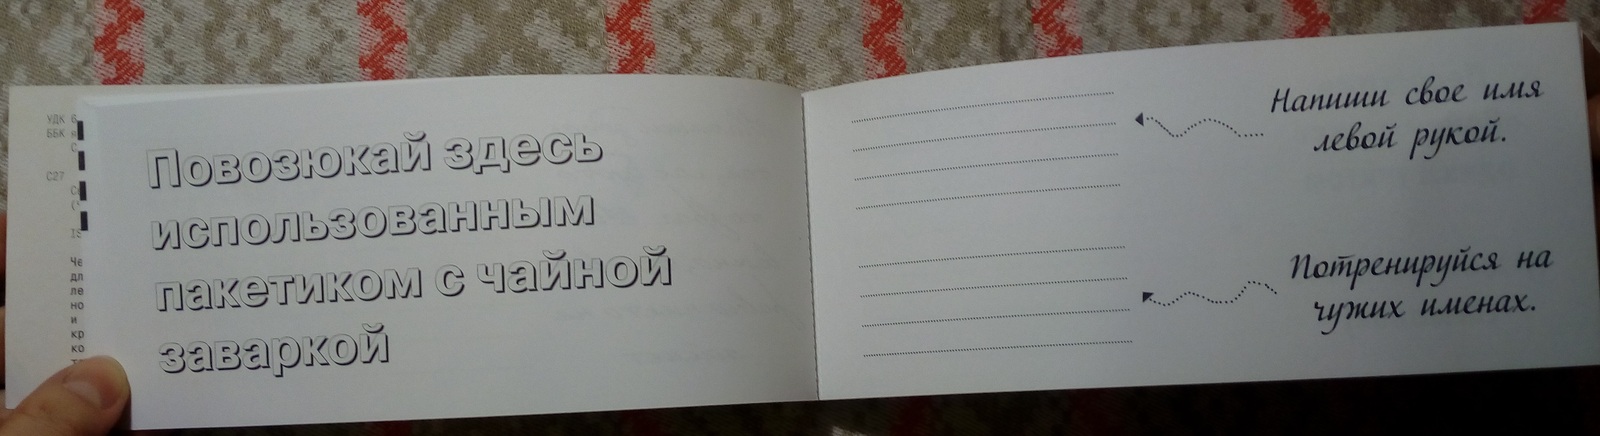 УДК 6
ББК
С27
Че
дл
ле
но
и
кр
ко
Повозюкай здесь
использованным
пакетиком с чайной
заваркой
Напиши свое имя
левой рукой.
Потренируйся на
чужих именах.